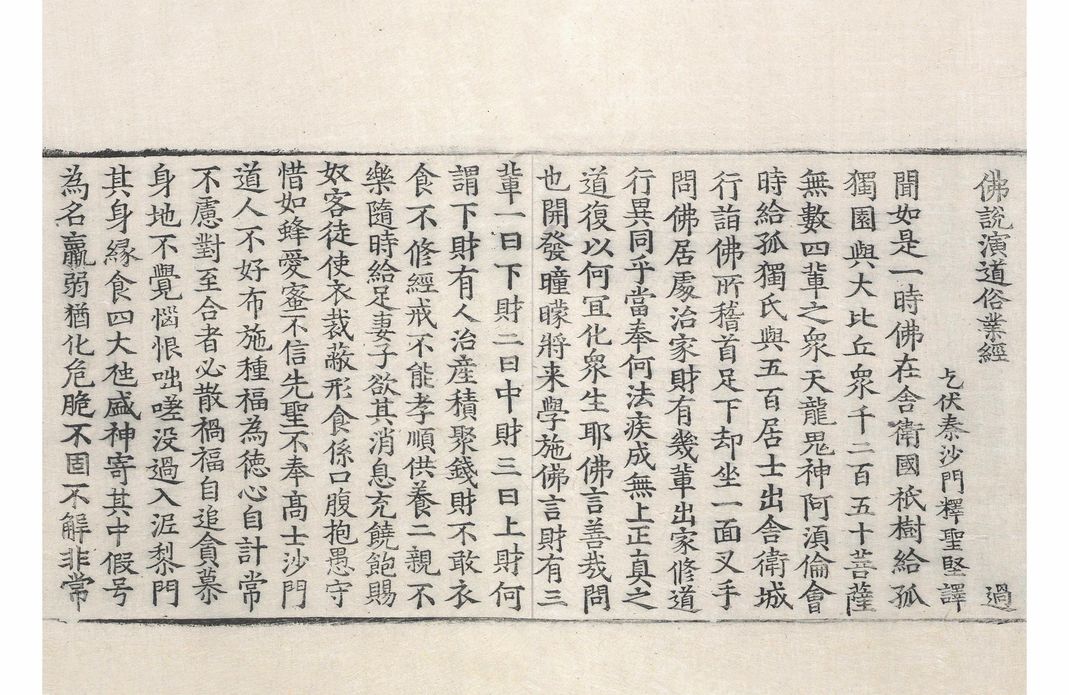 佛說演道俗業經 過
乞伏秦沙門釋聖堅譯
聞如是一時佛在舍衛國祇樹給孤
獨園與大比丘衆千二百五十菩薩
無數四輩之衆天龍鬼神阿湏倫會
時給孤獨氏與五百居士出舍衛城
行詣佛所稽首足下却坐一面叉手
問佛居處治家財有幾輩出家修道
行異同乎當奉何法疾成無上正真之
道復以何宜化衆生耶佛言善哉問
也開發曈曚將来學施佛言財有三
輩一曰下財二曰中財三曰上財何
謂下財有人治産積聚錢財不敢衣
食不修經戒不能孝順供養二親不
樂隨時給足妻子欲其消息充饒飽賜
奴客徒使衣裁蔽形食係口腹抱愚守
惜如蜂愛蜜不信先聖不奉髙士沙門
道人不好布施種福為徳心自計常
不慮對至合者必散禍福自追貪慕
身地不覺惱恨咄嗟没過入泥梨門
其身縁食四大虺盛神寄其中假号
為名羸弱猶化危脆不固不解非常